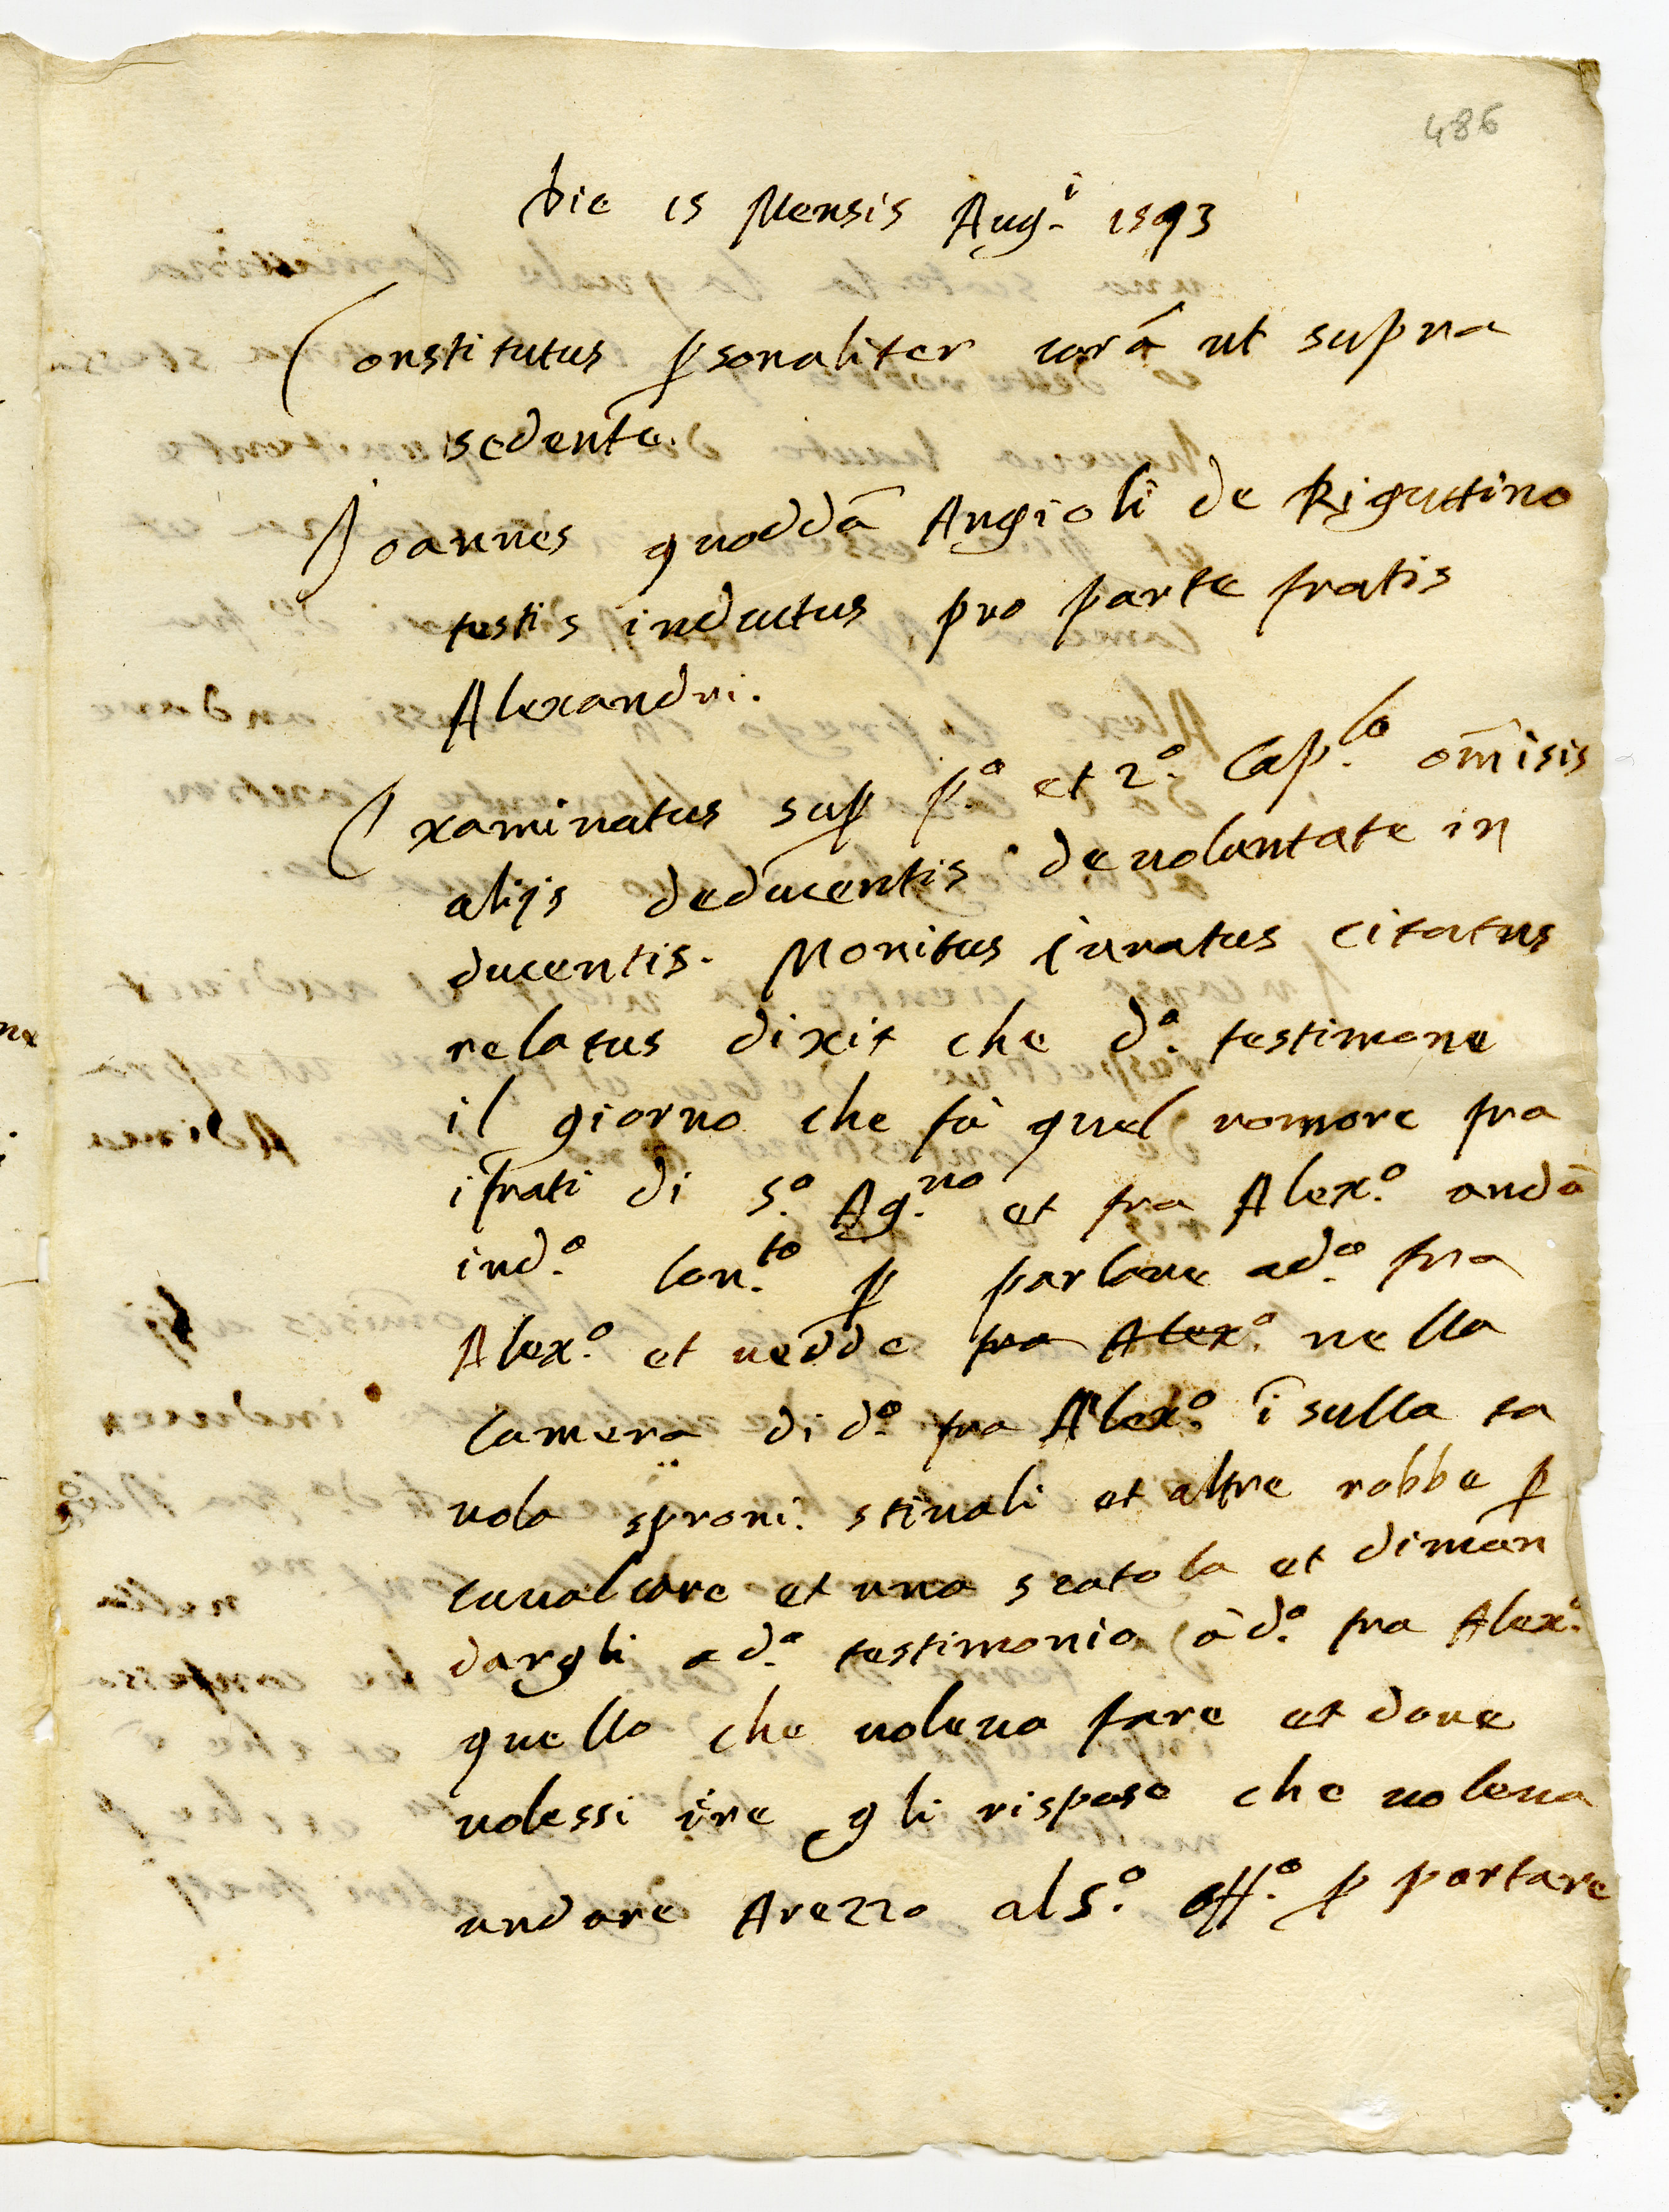 486
Die 15 Mensis Aug.i 1593
Constitutus ꝑsonaliter corã ut supra
sedente.
Joannes quoddã Angioli de Riguttino
testis inductus pro parte fratis
Alexandri.
Examinatus suꝑ p.º et 2.º Cap.lo om̃isis
alijs deducentis de uoluntate in
ducentis. Monitus iuratus citatus
relatus dixit che d.º testimone
il giorno che fù quel romore fra
i frati di S.º Ag.no et fra Alex.º andò
in d.º Con.to ꝑ parlare a d.º fra
Alex.º et uedde fra Alex.º nella
Camera di d.º fra Alex.º ĩ sulla ta
uola sproni. stiuali et altre robbe ꝑ
caualcare et una scatola et diman
dargli a d.º testimonio à d.º fra Alex.º
quello che uoleua fare et doue
uolessi ire gli rispose che uoleua
andare Arezzo al S.º Off.º ꝑ portare